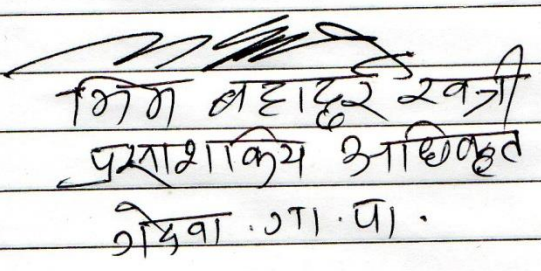 भिम बहादुर खत्री
प्रसाशकिय अधिकृत
गेरुवा . गा . पा .